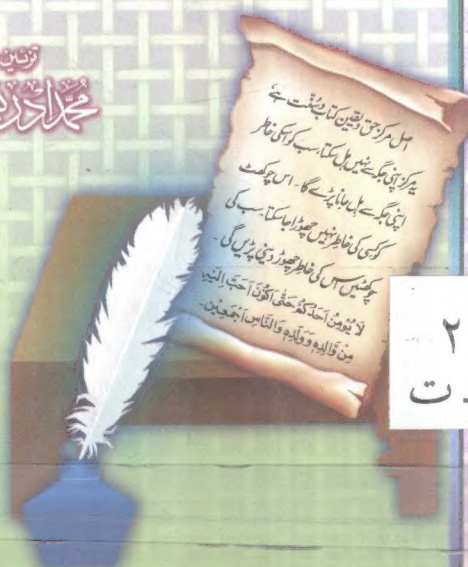 تزئین
محمد ادر
اصل مرکز حق و یقین کتاب و سُنّت ہے،
یہ مرکز اپنی جگہ سے نہیں ہل سکتا، سب کو اسکی خاطر
اپنی جگہ سے ہل جانا پڑے گا۔ اس چوکھٹ
کو کسی کی خاطر نہیں چھوڑا جا سکتا۔ سب کی
چوکھٹیں اس کی خاطر چھوڑ دینی پڑیں گی۔
لَا يُؤْمِنُ اَحَدُكُمْ حَتّٰى اَكُوْنَ اَحَبَّ اِلَيْهِ
مِنْ وَّالِدِهٖ وَوَلَدِهٖ وَالنَّاسِ اَجْمَعِيْنَ۔
۲
ت